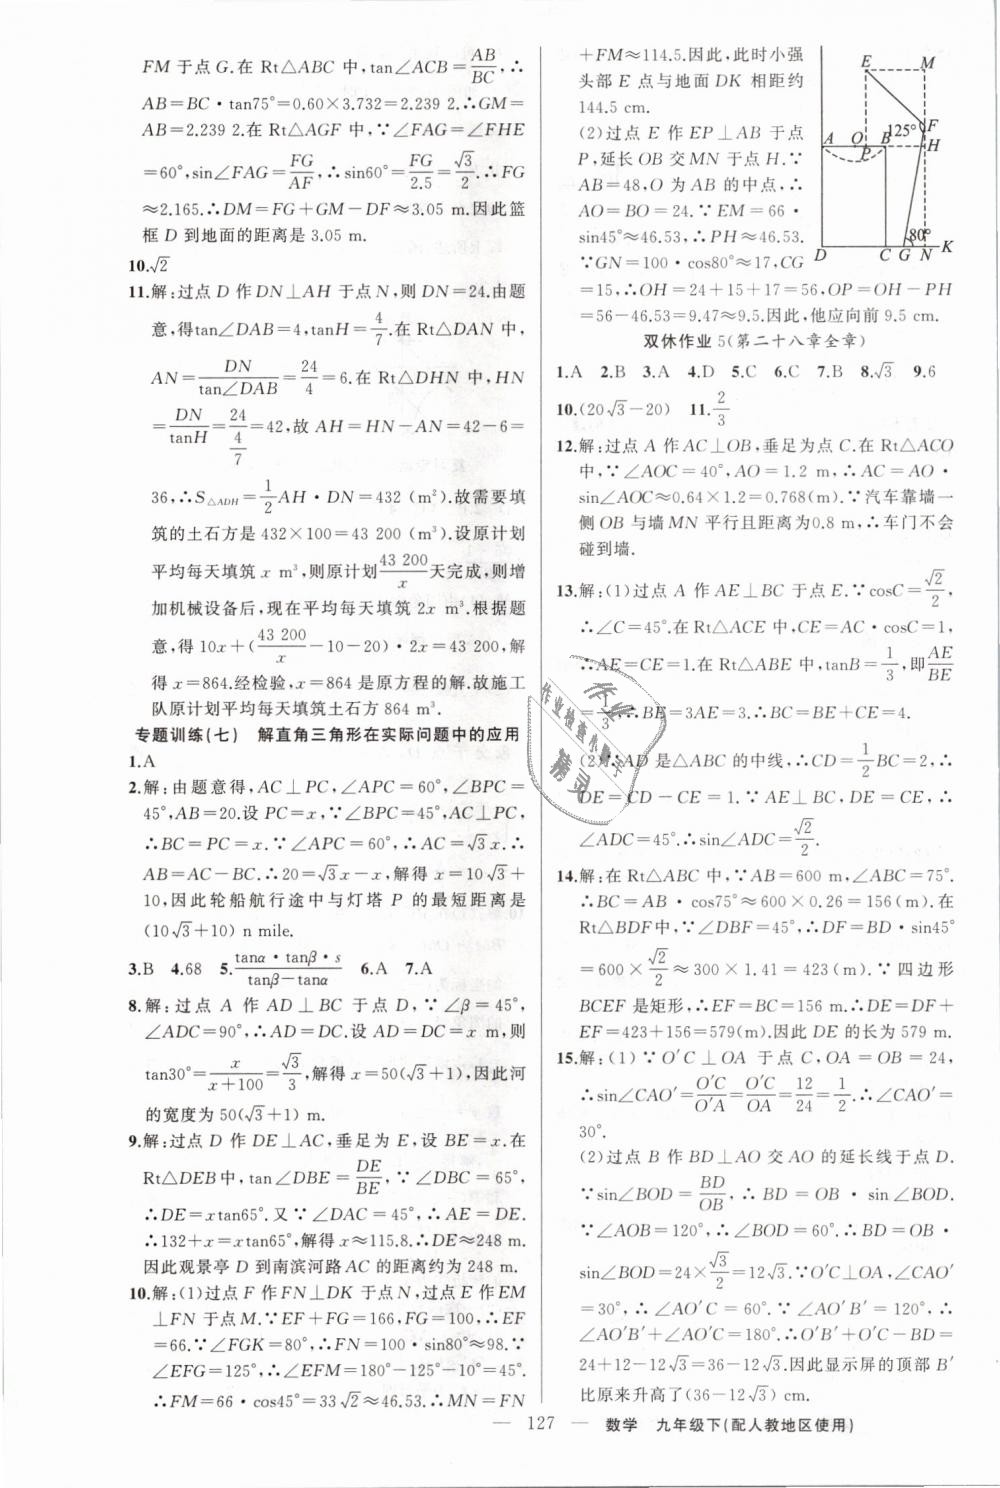 FM于点G.在Rt△ABC中,tan∠ACB=AB/BC,∴
AB=BC·tan75°=0.60×3.732=2.239 2.∴GM=
AB=2.239 2.在Rt△AGF中,∵∠FAG=∠FHE
=60°,sin∠FAG=FG/AF,∴sin60°=FG/2.5=√3/2.∴FG
≈2.165.∴DM=FG+GM-DF≈3.05 m.因此篮
框D到地面的距离是3.05 m.
10.√2
11.解:过点D作DN⊥AH于点N,则DN=24.由题
意,得tan∠DAB=4,tanH=4/7.在Rt△DAN中,
AN=DN/tan∠DAB=24/4=6.在Rt△DHN中,HN
=DN/tanH=24/(4/7)=42,故AH=HN-AN=42-6=
36,∴S△ADH=1/2AH·DN=432 (m²).故需要填
筑的土石方是432×100=43 200 (m³).设原计划
平均每天填筑x m³,则原计划43 200/x天完成,则增
加机械设备后,现在平均每天填筑2x m³.根据题
意,得10x+(43 200/x-10-20)·2x=43 200,解
得x=864.经检验,x=864是原方程的解.故施工
队原计划平均每天填筑土石方864 m³.
专题训练(七) 解直角三角形在实际问题中的应用
1.A
2.解:由题意得,AC⊥PC,∠APC=60°,∠BPC=
45°,AB=20.设PC=x,∵∠BPC=45°,AC⊥PC,
∴BC=PC=x.∵∠APC=60°,∴AC=√3x.∴
AB=AC-BC.∴20=√3x-x,解得x=10√3+
10,因此轮船航行途中与灯塔P的最短距离是
(10√3+10) n mile.
3.B 4.68 5.tanα·tanβ·s/(tanβ-tanα) 6.A 7.A
8.解:过点A作AD⊥BC于点D,∵∠β=45°,
∠ADC=90°,∴AD=DC.设AD=DC=x m,则
tan30°=x/(x+100)=√3/3,解得x=50(√3+1),因此河
的宽度为50(√3+1) m.
9.解:过点D作DE⊥AC,垂足为E,设BE=x.在
Rt△DEB中,tan∠DBE=DE/BE,∵∠DBC=65°,
∴DE=xtan65°.又∵∠DAC=45°,∴AE=DE.
∴132+x=xtan65°,解得x≈115.8.∴DE≈248 m.
因此观景亭D到南滨河路AC的距离约为248 m.
10.解:(1)过点F作FN⊥DK于点N,过点E作EM
⊥FN于点M.∵EF+FG=166,FG=100,∴EF
=66.∵∠FGK=80°,∴FN=100·sin80°≈98.∵
∠EFG=125°,∴∠EFM=180°-125°-10°=45°.
∴FM=66·cos45°=33√2≈46.53,∴MN=FN
+FM≈114.5.因此,此时小强
头部E点与地面DK相距约
144.5 cm.
(2)过点E作EP⊥AB于点
P,延长OB交MN于点H.∵
AB=48,O为AB的中点,∴
AO=BO=24.∵EM=66·
sin45°≈46.53,∴PH≈46.53.
∵GN=100·cos80°≈17,CG
=15,∴OH=24+15+17=56,OP=OH-PH
=56-46.53=9.47≈9.5.因此,他应向前9.5 cm.
E M
125° F
A O B H
P
80°
D C G N K
双休作业5(第二十八章全章)
1.A 2.B 3.A 4.D 5.C 6.C 7.B 8.√3 9.6
10.(20√3-20) 11.2/3
12.解:过点A作AC⊥OB,垂足为点C.在Rt△ACO
中,∵∠AOC=40°,AO=1.2 m,∴AC=AO·
sin∠AOC≈0.64×1.2=0.768(m).∵汽车靠墙一
侧OB与墙MN平行且距离为0.8 m,∴车门不会
碰到墙.
13.解:(1)过点A作AE⊥BC于点E.∵cosC=√2/2,
∴∠C=45°.在Rt△ACE中,CE=AC·cosC=1,
∴AE=CE=1.在Rt△ABE中,tanB=1/3,即AE/BE
=1/3.∴BE=3AE=3.∴BC=BE+CE=4.
(2)∵AD是△ABC的中线,∴CD=1/2BC=2.∴
DE=CD-CE=1.∵AE⊥BC,DE=CE,∴
∠ADC=45°.∴sin∠ADC=√2/2.
14.解:在Rt△ABC中,∵AB=600 m,∠ABC=75°.
∴BC=AB·cos75°≈600×0.26=156(m).在
Rt△BDF中,∵∠DBF=45°,∴DF=BD·sin45°
=600×√2/2≈300×1.41=423(m).∵四边形
BCEF是矩形,∴EF=BC=156 m.∴DE=DF+
EF=423+156=579(m).因此DE的长为579 m.
15.解:(1)∵O′C⊥OA于点C,OA=OB=24,
∴sin∠CAO′=O′C/O′A=O′C/OA=12/24=1/2.∴∠CAO′=
30°.
(2)过点B作BD⊥AO交AO的延长线于点D.
∵sin∠BOD=BD/OB,∴BD=OB·sin∠BOD.
∵∠AOB=120°,∴∠BOD=60°.∴BD=OB·
sin∠BOD=24×√3/2=12√3.∵O′C⊥OA,∠CAO′
=30°,∴∠AO′C=60°.∵∠AO′B′=120°,∴
∠AO′B′+∠AO′C=180°.∴O′B′+O′C-BD=
24+12-12√3=36-12√3.因此显示屏的顶部B′
比原来升高了(36-12√3) cm.
作业
作业检查小助手
精灵
— 127 — 数学 九年级下(配人教地区使用)